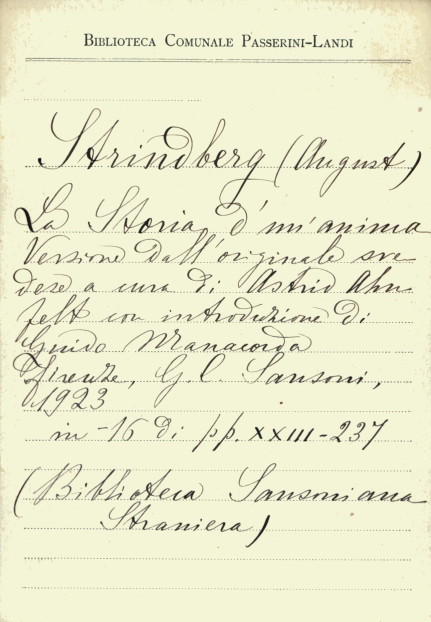 BIBLIOTECA COMUNALE PASSERINI-LANDI
Strindberg (August)
La Storia d'un'anima
Versione dall'originale sve
dese a cura di Astrid Ahn
felt con introduzione di
Guido Manacorda
Firenze, G. C. Sansoni,
1923
in-16 di pp. XXIII-237
(Biblioteca Sansoniana
Straniera)